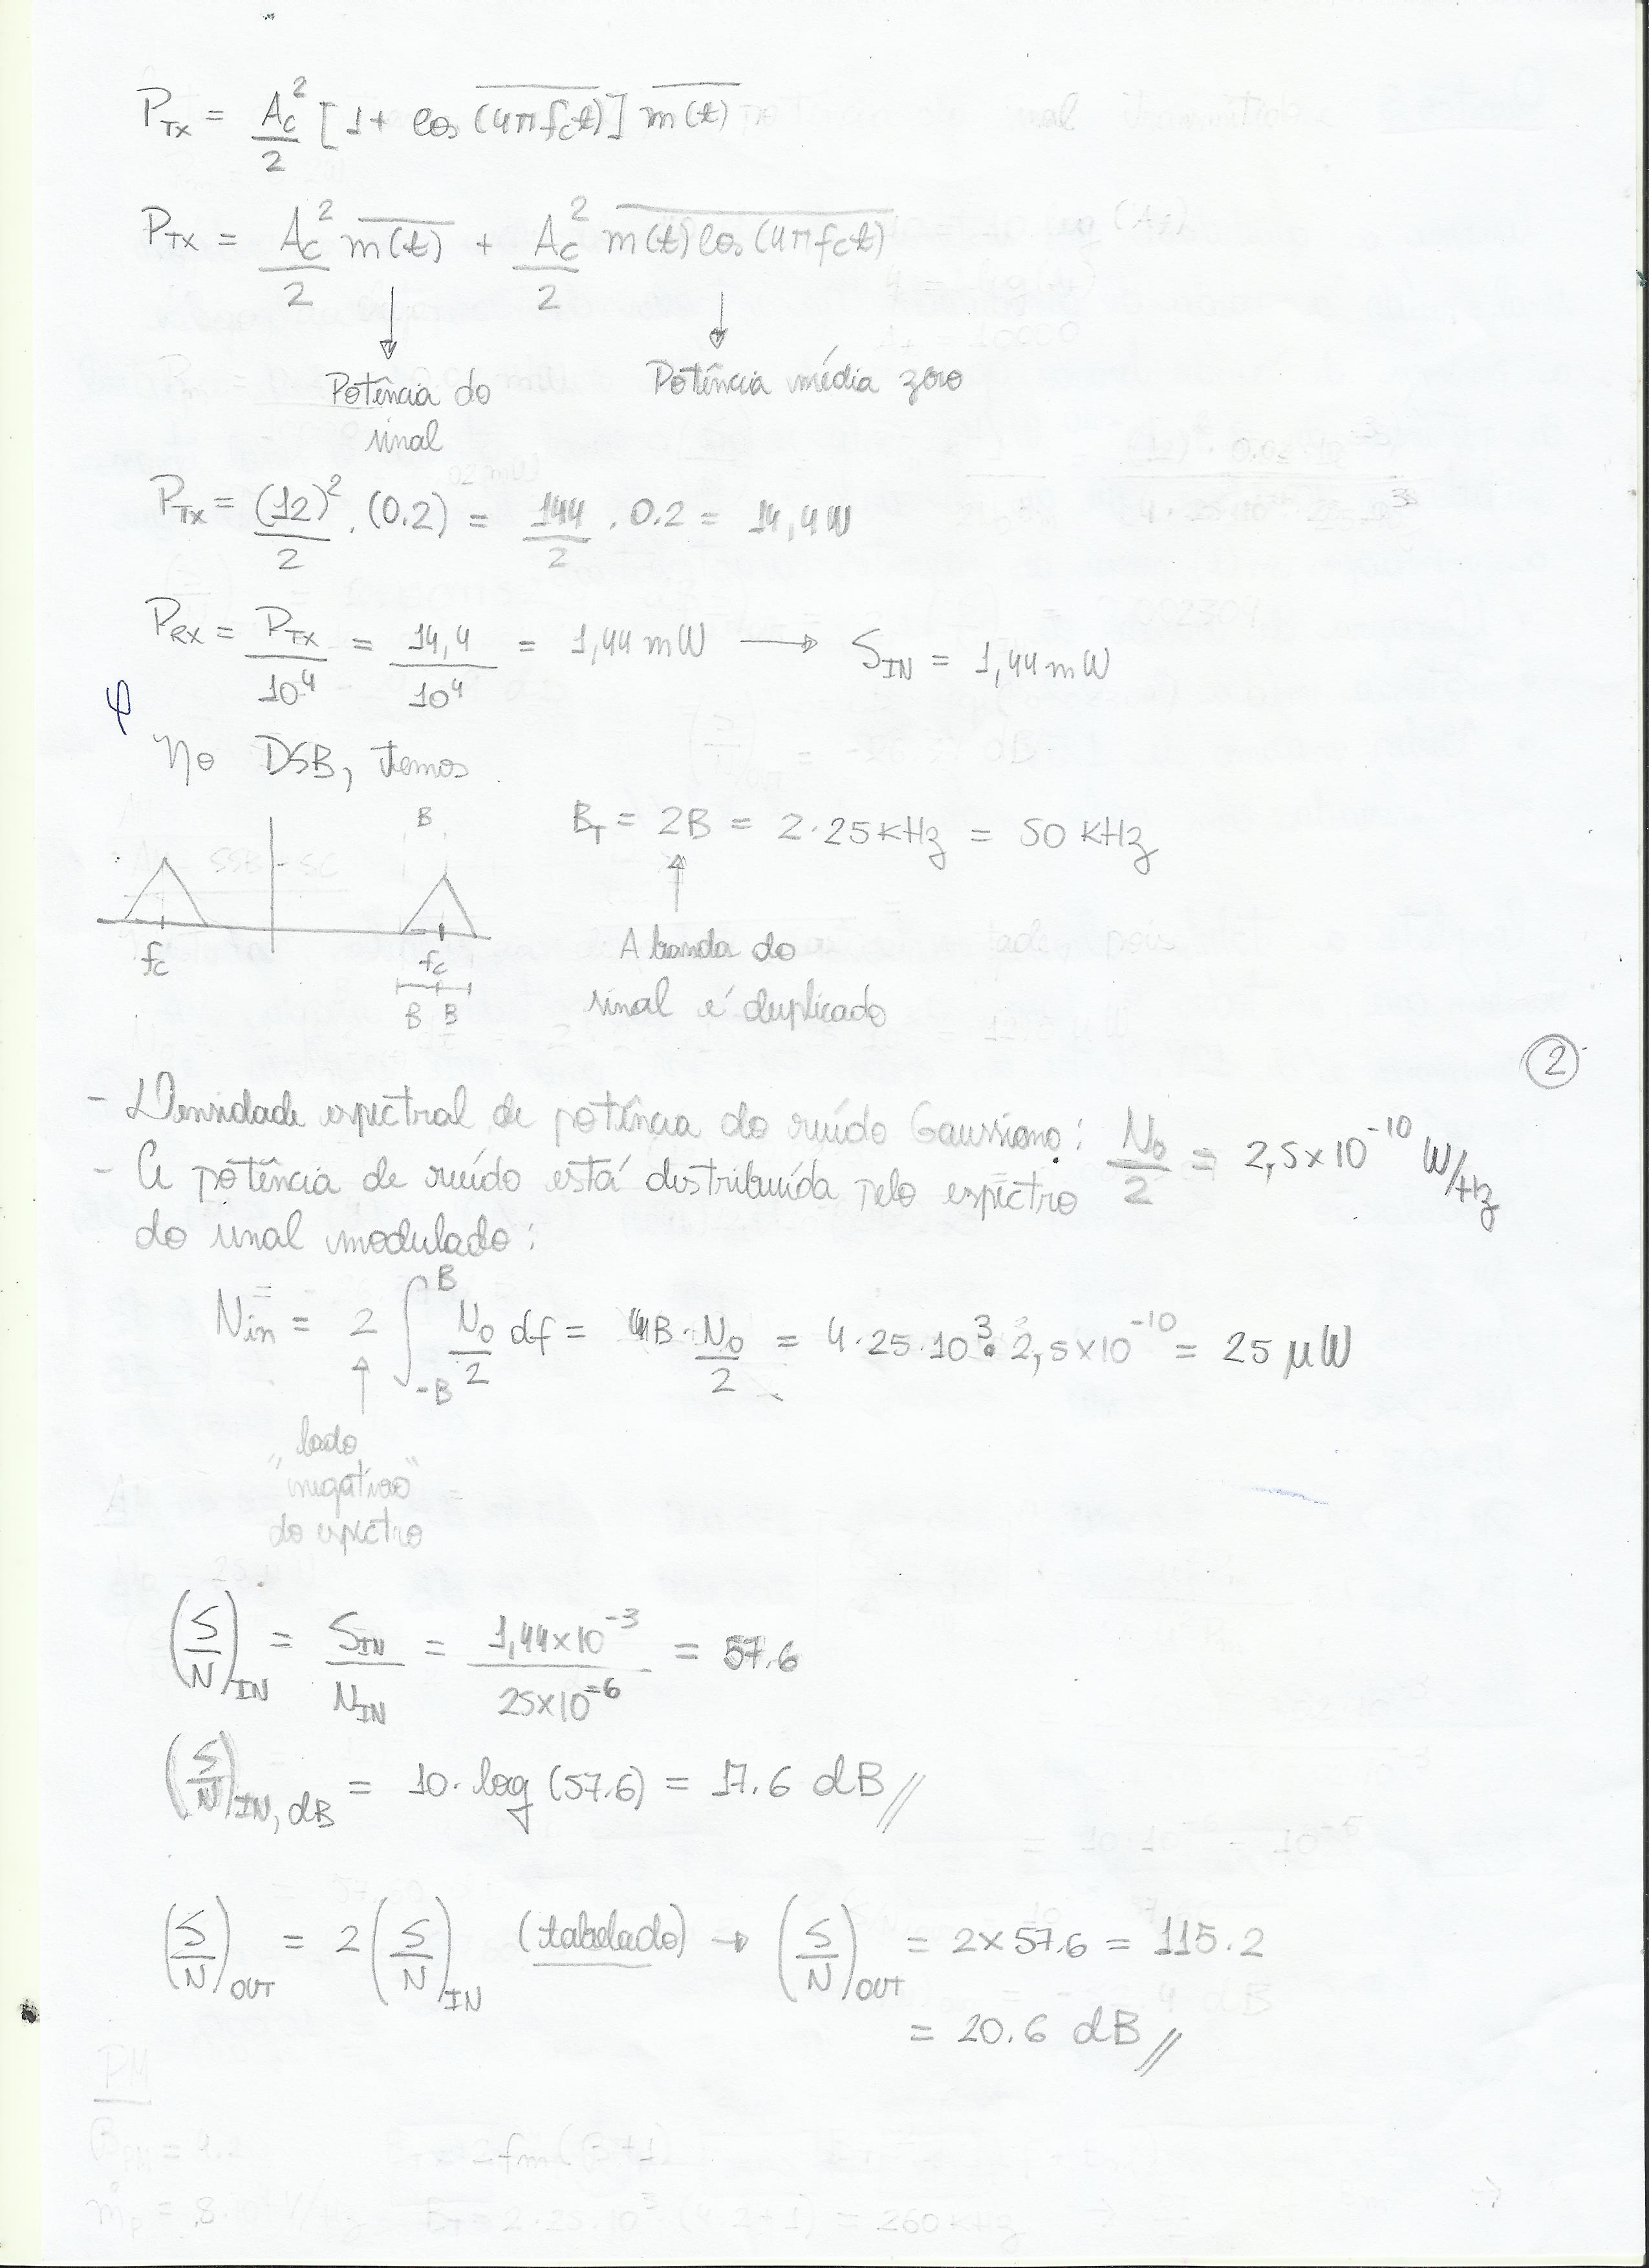 P_TX = A_c²/2 [1 + cos (4πf_c t)] m(t)
P_TX = A_c²/2 m(t) + A_c²/2 m(t) cos (4πf_c t)
Potência do sinal
Potência média zero
P_TX = (12)²/2 . (0.2) = 144/2 . 0.2 = 14,4 W
P_RX = P_TX/10⁴ = 14,4/10⁴ = 1,44 mW → S_IN = 1,44 mW
φ
No DSB, temos
B
B_T = 2B = 2·25 KHz = 50 KHz
fc
fc
B B
A banda do
sinal é duplicado
2
- Densidade espectral de potência do ruído Gaussiano: N₀/2 = 2,5×10⁻¹⁰ W/Hz
- A potência de ruído está distribuída pelo espectro
do sinal modulado:
N_in = 2 ∫_{-B}^{B} N₀/2 df = 4B · N₀/2 = 4·25·10³·2,5×10⁻¹⁰ = 25 μW
"lado
negativo"
do espectro
(S/N)_IN = S_IN/N_IN = 1,44×10⁻³/25×10⁻⁶ = 57.6
(S/N)_IN, dB = 10·log (57.6) = 17.6 dB //
(S/N)_OUT = 2 (S/N)_IN (tabelado) → (S/N)_OUT = 2×57.6 = 115.2
= 20.6 dB //